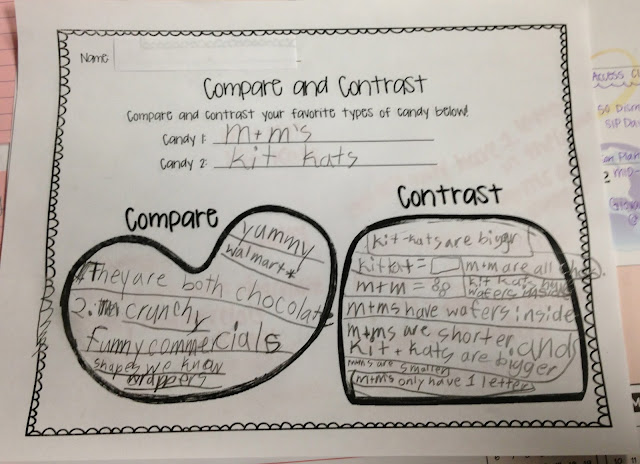 Name
Compare and Contrast
Compare and contrast your favorite types of candy below!
Candy 1: m+m's
Candy 2: kit kats
Compare
yummy
walmart
They are both chocolate
2. crunchy
funny commercials
shapes we know
wrappers
Contrast
kit-kats are bigger
kitkat = m+m are all
m+m = kit kats
wafers inside
m+ms have wafers inside
m+ms are shorter and
kit + kats are bigger
m+ms are smaller
m+m's only have 1 letter
Access
50 Dism
SIP Da
Plan
2